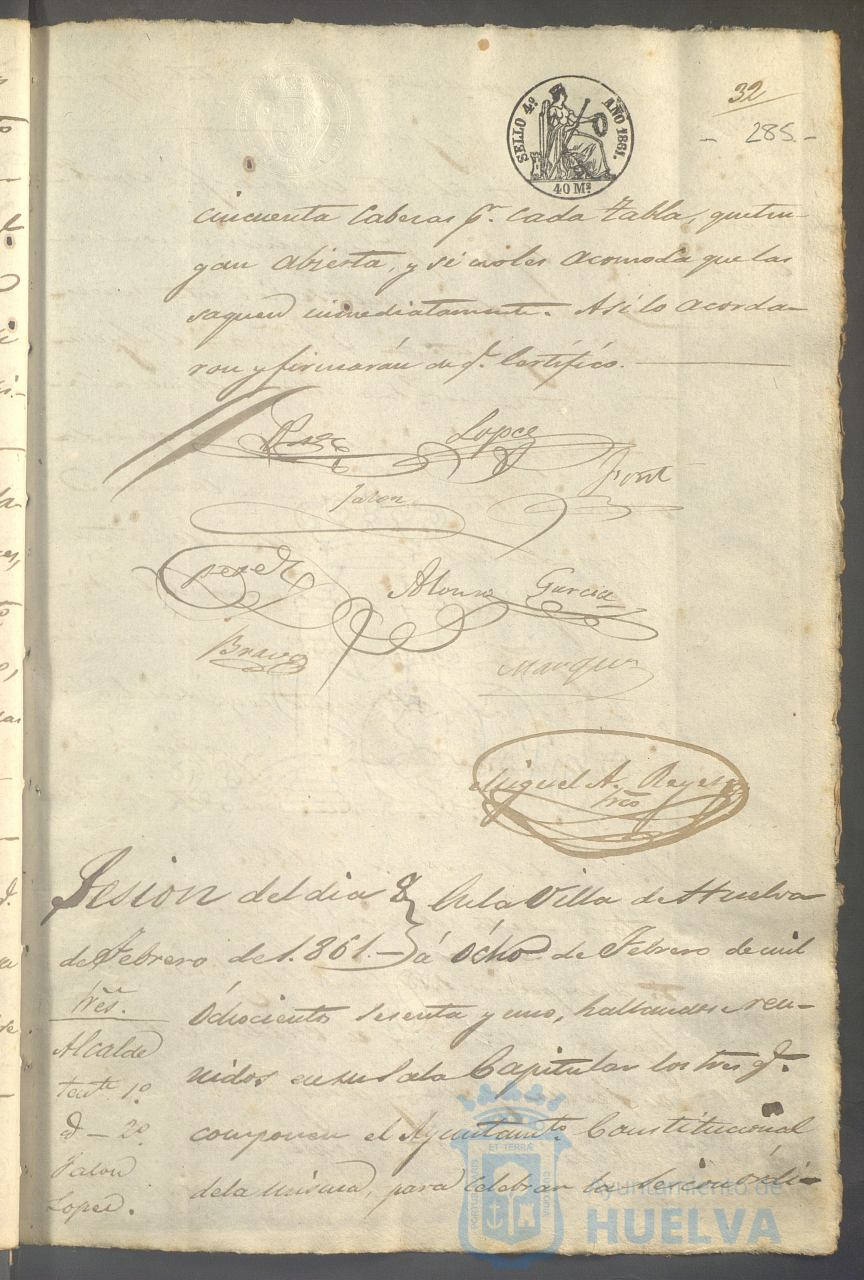 SELLO 4º AÑO 1861.
40 Ms
32
- 285 -
cincuenta Caberas pr. cada tabla, que ten-
gan abierta, y si no les acomoda que las
saquen inmediatamente. Así lo acorda-
ron y firmarán de q. Certifico.
Lopez
Font
Jalon
Perez
Alonso Garcia
Bravo
Marquez
Miguel A. Reyes
Srio
Sesion del dia 8
de Febrero de 1.861.
En la Villa de Huelva
á Ocho de Febrero de mil
Ochocientos sesenta y uno, hallandose reu-
nidos en su Sala Capitular los Sres q.
componen el Ayuntamto. Constitucional
de la misma, para celebrar la Sesion ordi-
Sres.
Alcalde
tente. 1º
id - 2º
Jalon
Lopez.
ET TERRÆ
Ayuntamiento de
HUELVA